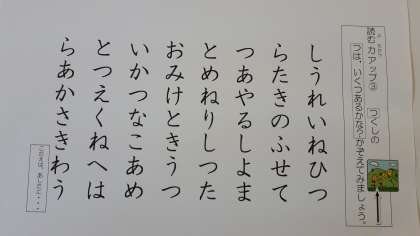 読む力アップ③ つくしの
つは、いくつあるかな?かぞえてみましょう。
しうれいねひつ
らたきのふせて
つあやるしよま
とめねりしつた
おみけときうつ
いかつなこあめ
とつえくねへは
らあかさきわう
こたえは、あしたに・・・